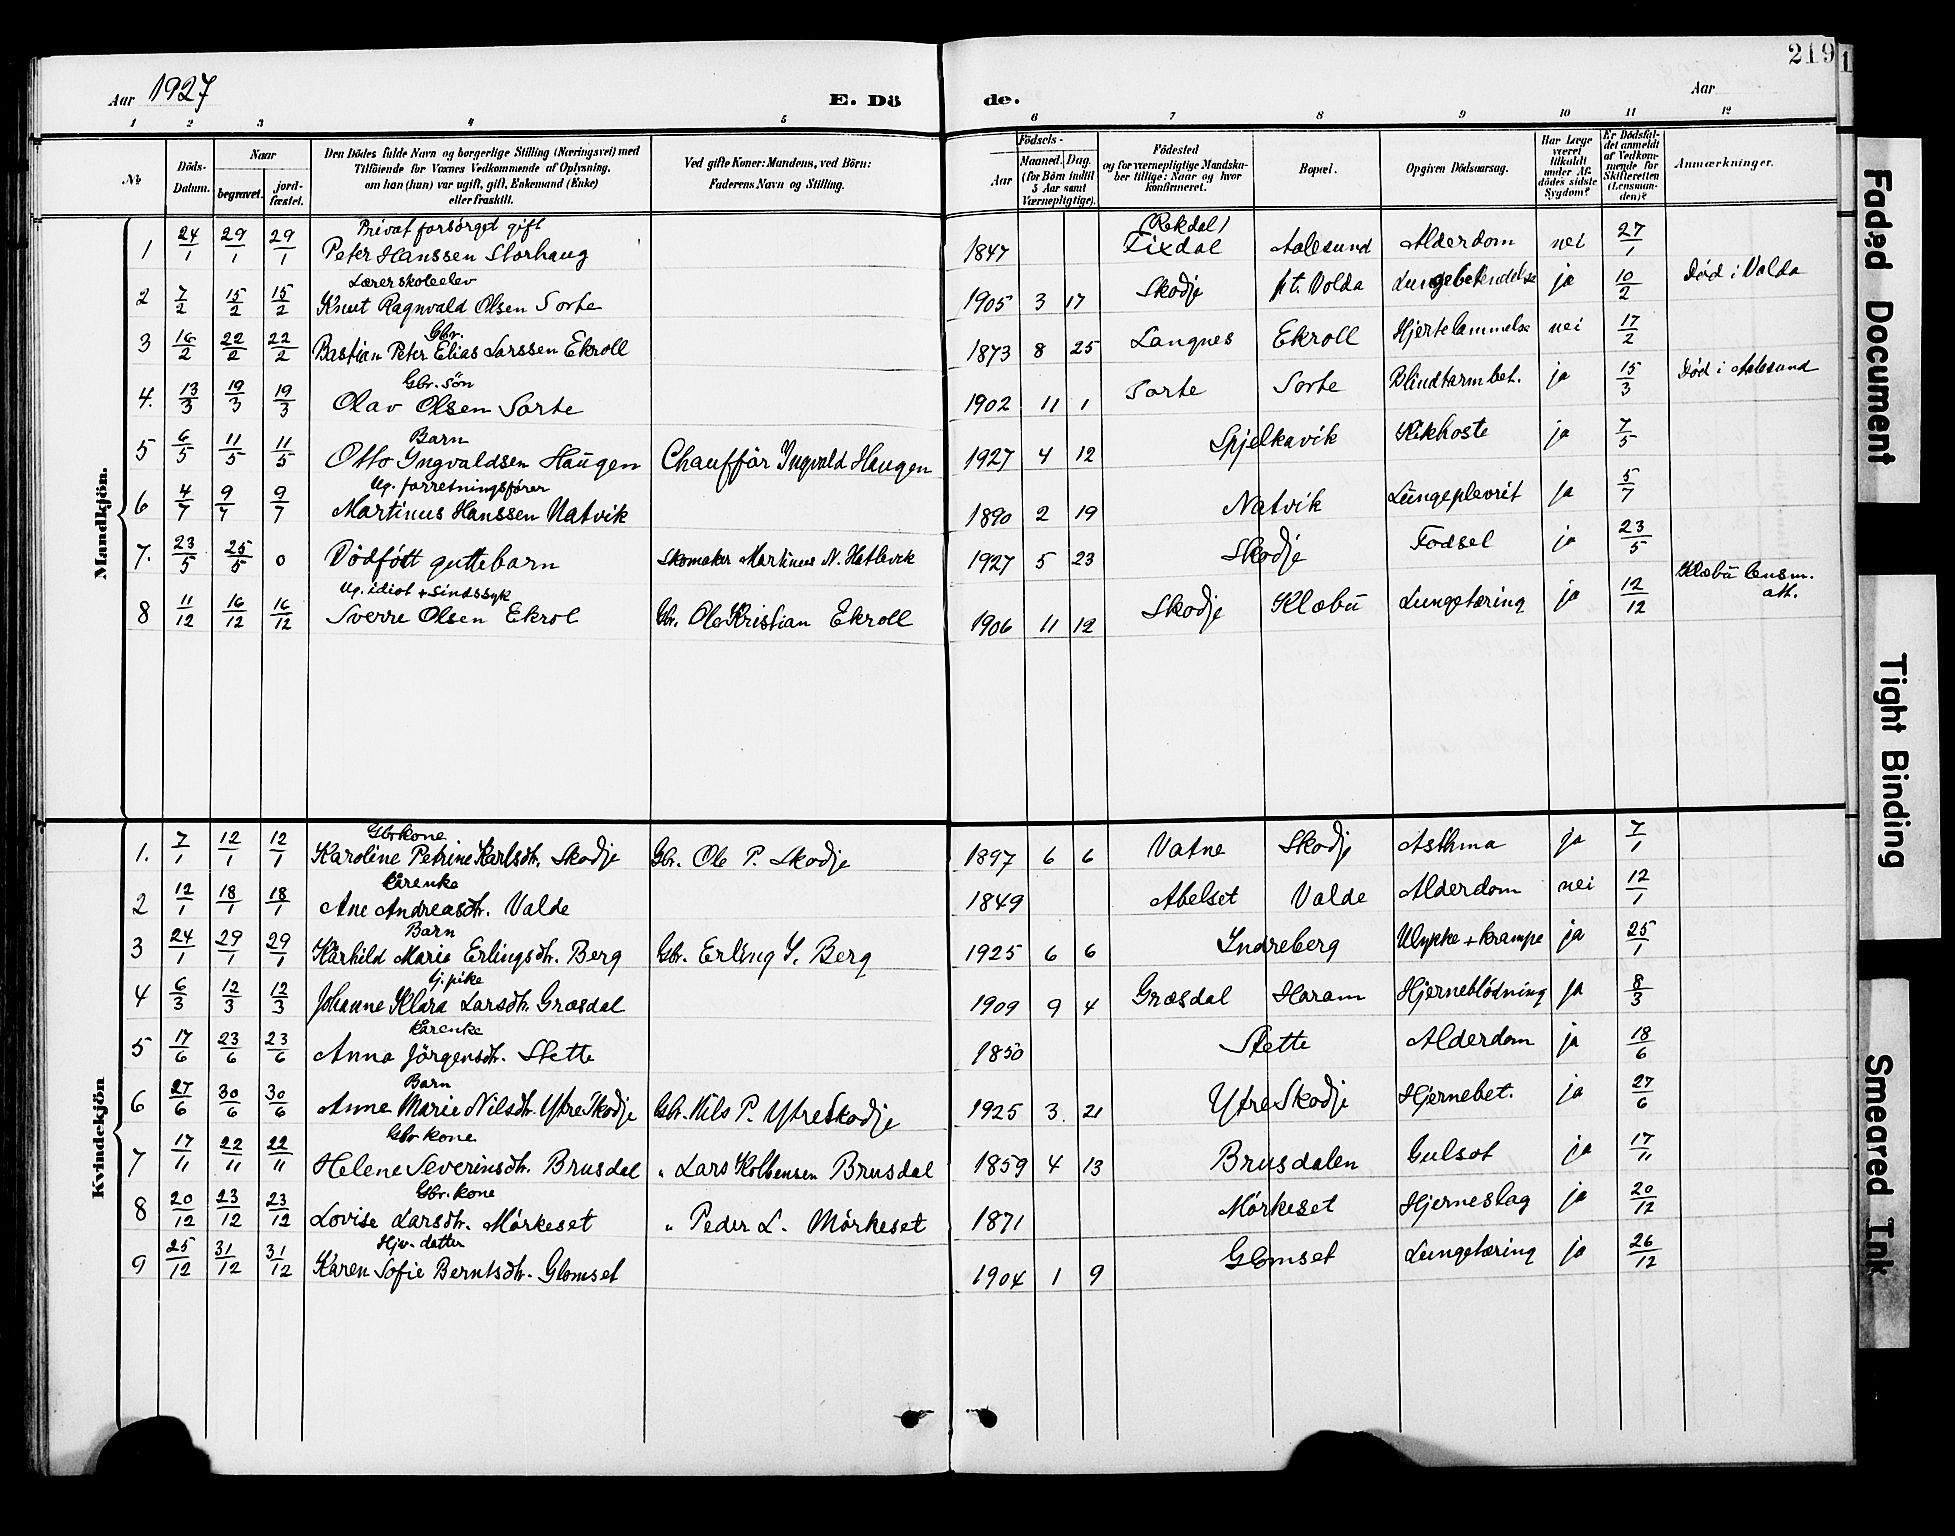 219
Aar 1927 E. Dö de. Aar
1 2 3 4 5 6 7 8 9 10 11 12
№
Döds-Datum.
Naar
begravet.
jord-fæstet.
Den Dödes fulde Navn og borgerlige Stilling (Næringsvei) med
Tilföiende for Voxnes Vedkommende af Oplysning,
om han (hun) var ugift, gift, Enkemand (Enke)
eller fraskilt.
Ved gifte Koner: Mandens, ved Börn:
Faderens Navn og Stilling.
Födsels-
Aar
Maaned. Dag.
(for Börn indtil
5 Aar samt
Værnepligtige).
Födested
og for værnepligtige Mandska-
ber tillige: Naar og hvor
konfirmeret.
Bopæl.
Opgiven Dödsaarsag.
Har Læge
været
tilkaldt
under Af-
dödes sidste
Sygdom?
Er Dödsfal-
det anmeldt
af Vedkom-
mende for
Skifteretten
(Lensman-
den)?
Anmærkninger.
Mandkjön.
Privat forsörget gift (Rekdal)
1 24/1 29/1 29/1 Peter Hanssen Storhaug 1847 Fixdal Aalesund Alderdom nei 27/1
Lærerskoleelev
2 7/2 15/2 15/2 Knut Ragnvald Olsen Sorte 1905 3 17 Skodje p.t. Volda Lungebetendelse ja 10/2 Död i Volda
Gbr.
3 16/2 22/2 22/2 Bastian Peter Elias Larssen Ekroll 1873 8 25 Langnes Ekroll Hjertelammelse nei 17/2
Gbr. sön
4. 13/3 19/3 19/3 Olav Olsen Sorte 1902 11 1 Sorte Sorte Blindtarmbet. ja 15/3 Död i Aalesund
Barn
5 6/5 11/5 11/5 Otto Yngvaldsen Haugen Chaufför Yngvald Haugen 1927 4 12 Spjelkavik Kikhoste ja 7/5
Ug. forretningsförer
6 4/7 9/7 9/7 Martinus Hanssen Natvik 1890 2 19 Natvik Lungeplevrit ja 5/7
7. 23/5 25/5 0 Dödfött guttebarn Skomaker Martinus N. Hatlevik 1927 5 23 Skodje Födsel ja 23/5
Ug. idiot + sindssyk
8 11/12 16/12 16/12 Sverre Olsen Ekrol Gbr. Ole Kristian Ekroll 1906 11 12 Skodje Klæbu Lungetæring ja 12/12 Klæbu lensm. att.
Kvindekjön
Gbrkone
1. 7/1 12/1 12/1 Karoline Petrine Karlsdtr. Skodje Gbr. Ole P. Skodje 1897 6 6 Vatne Skodje Asthma ja 7/1
Kårenke
2 12/1 18/1 18/1 Ane Andreasdtr. Valde 1849 Abelset Valde Alderdom nei 12/1
Barn
3 24/1 29/1 29/1 Kårhild Marie Erlingsdtr. Berg Gbr. Erling I. Berg 1925 6 6 Indreberg Ulykke + krampe ja 25/1
tj. pike
4 6/3 12/3 12/3 Johanne Klara Larsdtr. Græsdal 1909 9 4 Græsdal Haram Hjerneblödning ja 8/3
Kårenke
5 17/6 23/6 23/6 Anna Jörgensdtr. Stette 1850 Stette Alderdom ja 18/6
Barn
6 27/6 30/6 30/6 Anne Marie Nilsdtr. Ytre Skodje Gbr. Nils P. Ytre Skodje 1925 3. 21 Ytre Skodje Hjernebet. ja 27/6
Gbr kone
7 17/11 22/11 22/11 Helene Severinsdtr. Brusdal " Lars Kolbensen Brusdal 1859 4 13 Brusdalen Gulsot ja 17/11
Gbr. kone
8 20/12 23/12 23/12 Lovise Larsdtr. Mörkeset " Peder L. Mörkeset 1871 Mörkeset Hjerneslag ja 20/12
Hjv. datter
9 25/12 31/12 31/12 Karen Sofie Berntsdtr. Glomset 1904 1 9 Glomset Lungetæring ja 26/12
Faded Document
Tight Binding
Smeared Ink